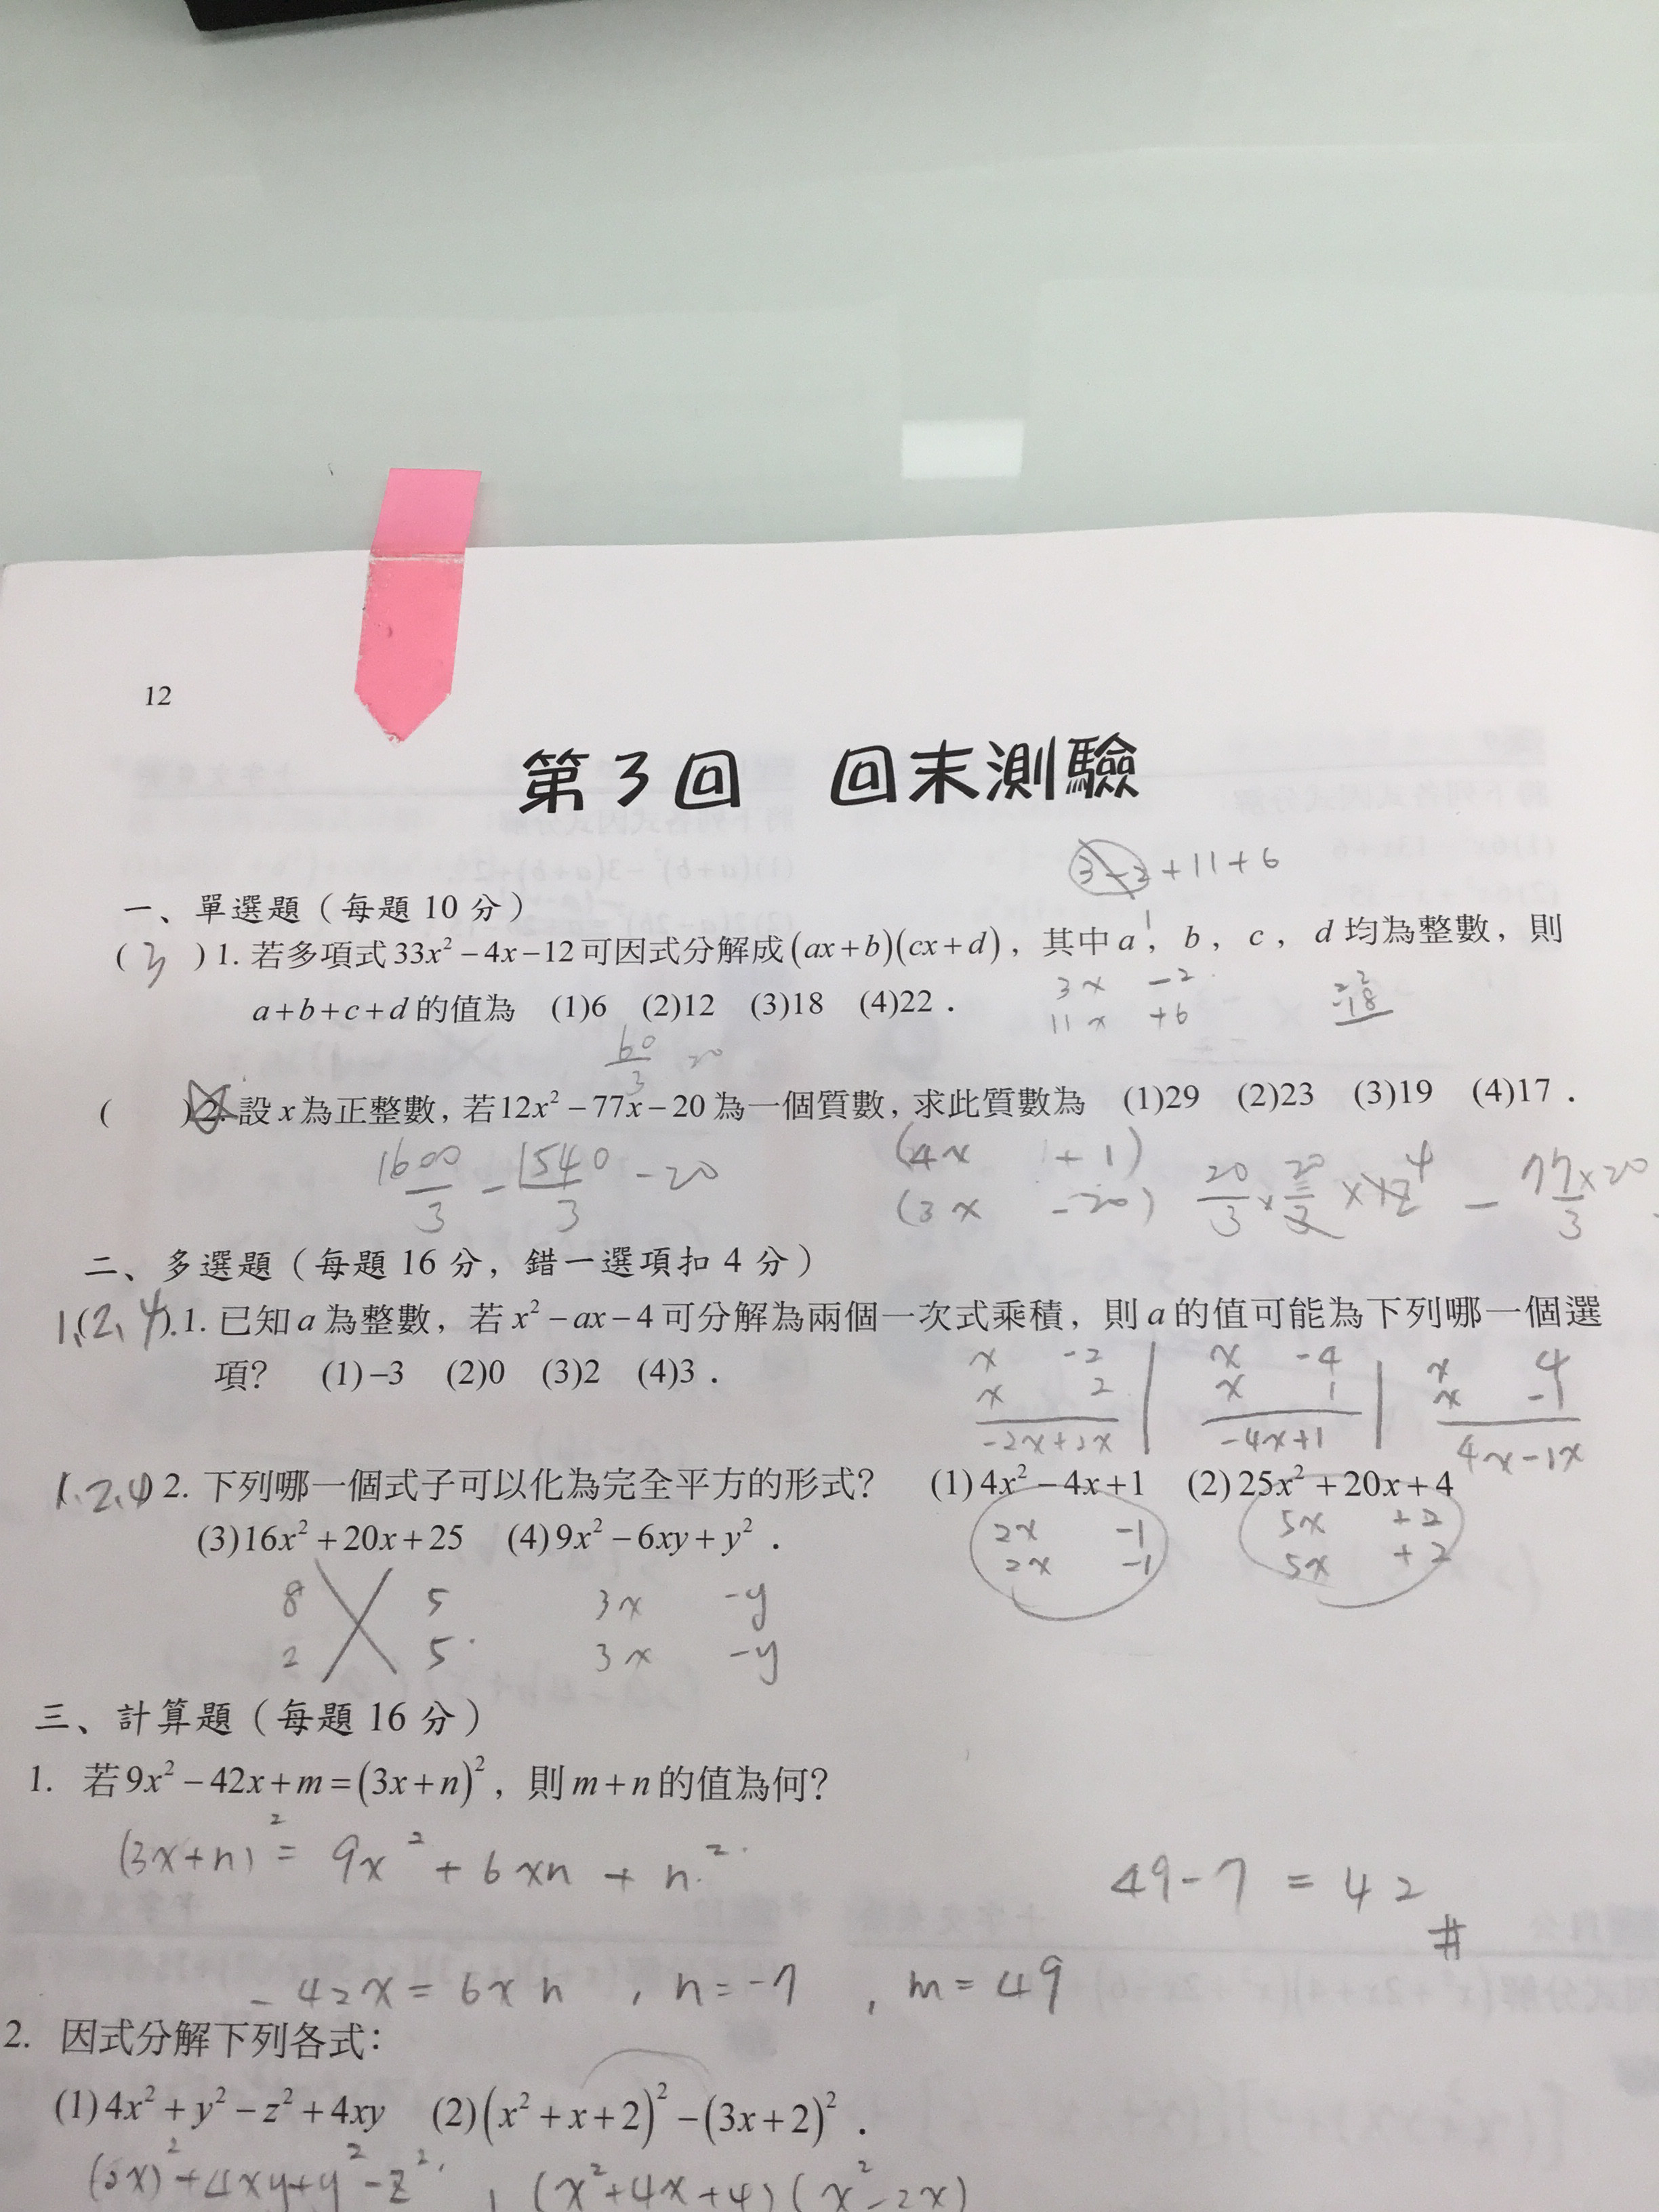 12
第3回 回末測驗
3-2+11+6
一、單選題（每題 10 分）
( 3 ) 1. 若多項式 33x² − 4x − 12 可因式分解成 (ax + b)(cx + d)，其中 a，b，c，d 均為整數，則
3x -2
a + b + c + d 的值為 (1)6 (2)12 (3)18 (4)22．
11x +6
18
60/3 20
( ) 2. 設 x 為正整數，若 12x² − 77x − 20 為一個質數，求此質數為 (1)29 (2)23 (3)19 (4)17．
1600/3 - 1540/3 - 20
(4x +1)
(3x -20)
20/3 × 20/3 × 4 - 77×20/3
二、多選題（每題 16 分，錯一選項扣 4 分）
1,(2,4). 1. 已知 a 為整數，若 x² − ax − 4 可分解為兩個一次式乘積，則 a 的值可能為下列哪一個選
項？ (1)−3 (2)0 (3)2 (4)3．
x -2 | x -4 | x 4
x 2 | x 1 | x -1
-2x+2x | -4x+1 | 4x-1x
1.2.4) 2. 下列哪一個式子可以化為完全平方的形式？ (1) 4x² − 4x + 1 (2) 25x² + 20x + 4
2x -1 5x +2
2x -1 5x +2
(3)16x² + 20x + 25 (4) 9x² − 6xy + y²．
8 5 3x -y
2 5 3x -y
三、計算題（每題 16 分）
1. 若 9x² − 42x + m = (3x + n)²，則 m + n 的值為何？
(3x+n)² = 9x² + 6xn + n²
49-7 = 42 #
-42x = 6xn , n=-7 , m=49
2. 因式分解下列各式：
(1) 4x² + y² − z² + 4xy (2) (x² + x + 2)² − (3x + 2)²．
(2x)²+4xy+y²-z² , (x²+4x+4)(x²-2x)